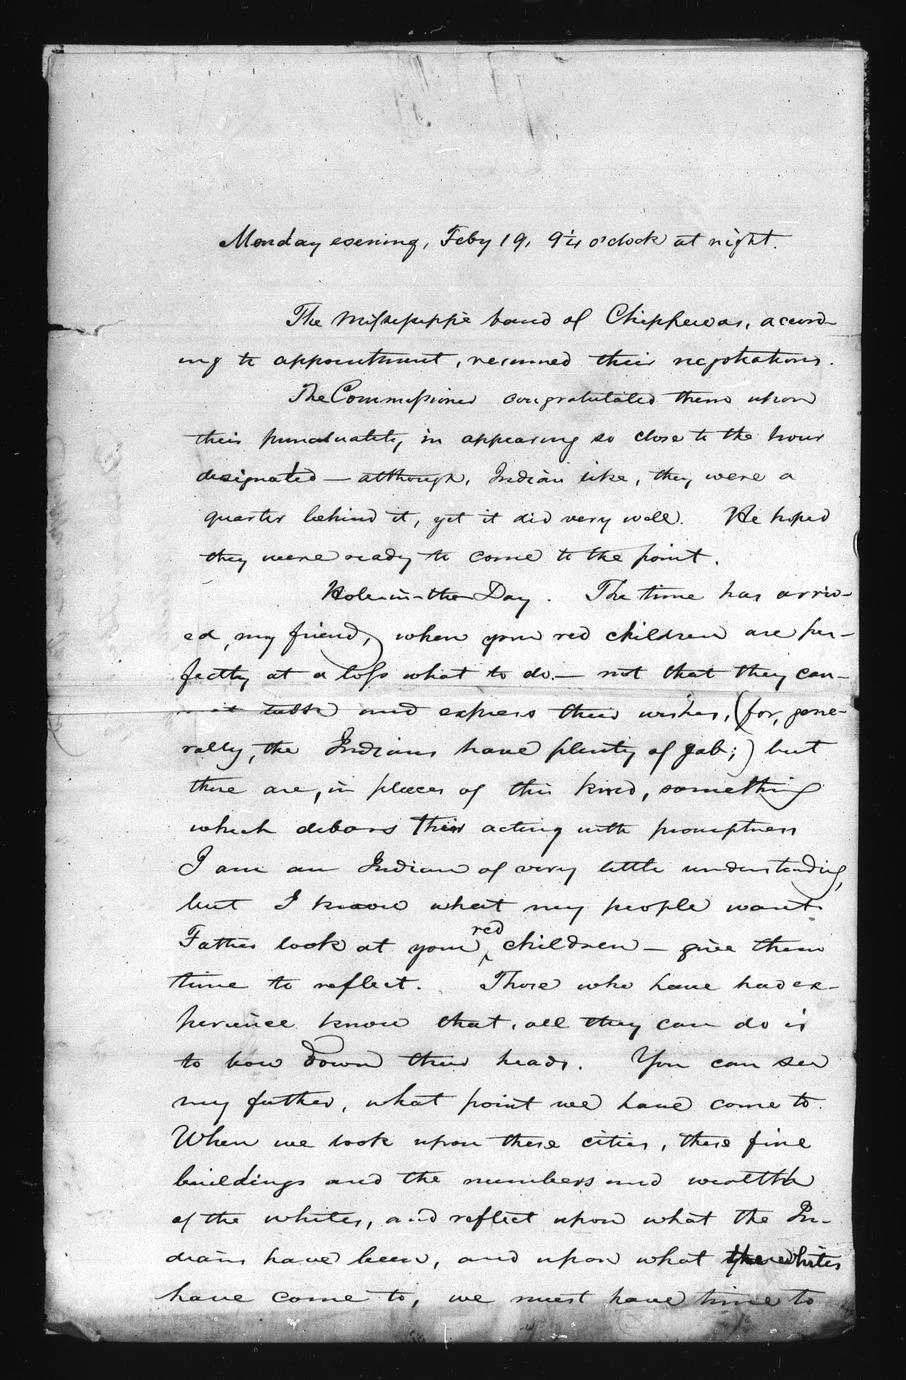 Monday evening, Feby 19, 9¼ o'clock at night.
The Mississippi band of Chippewas, accord-
ing to appointment, resumed their negotiations.
The Commissioner congratulated them upon
their punctuality, in appearing so close to the hour
designated — although, Indian like, they were a
quarter behind it, yet it did very well. He hoped
they were ready to come to the point.
Hole-in-the-Day. The time has arriv-
ed, my friend, when your red children are per-
fectly at a loss what to do. — not that they can-
not talk and express their wishes, (for, gene-
rally, the Indians have plenty of gab;) but
there are, in places of this kind, something
which debars their acting with promptness
I am an Indian of very little understanding,
but I know what my people want.
Father look at your red children — give them
time to reflect. Those who have had ex-
perience know that, all they can do is
to bow down their heads. You can see
my father, what point we have come to.
When we look upon these cities, these fine
buildings and the numbers and wealth
of the whites, and reflect upon what the In-
dians have been, and upon what the whites
have come to, we must have time to